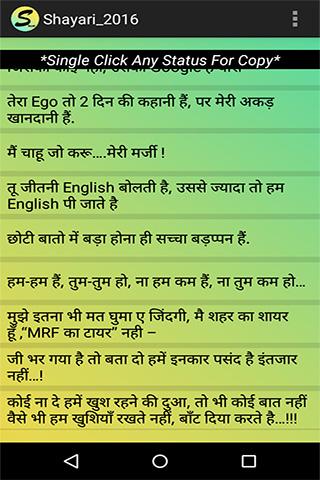 Shayari_2016
*Single Click Any Status For Copy*
तेरा Ego तो 2 दिन की कहानी हैं, पर मेरी अकड़
खानदानी हैं.
मैं चाहू जो करू....मेरी मर्जी !
तू जीतनी English बोलती है, उससे ज्यादा तो हम
English पी जाते है
छोटी बातो में बड़ा होना ही सच्चा बड़प्पन हैं.
हम-हम हैं, तुम-तुम हो, ना हम कम हैं, ना तुम कम हो...
मुझे इतना भी मत घुमा ए जिंदगी, मै शहर का शायर
हूँ ,“MRF का टायर” नही –
जी भर गया है तो बता दो हमें इनकार पसंद है इंतजार
नहीं...!
कोई ना दे हमें खुश रहने की दुआ, तो भी कोई बात नहीं
वैसे भी हम खुशियाँ रखते नहीं, बाँट दिया करते है...!!!